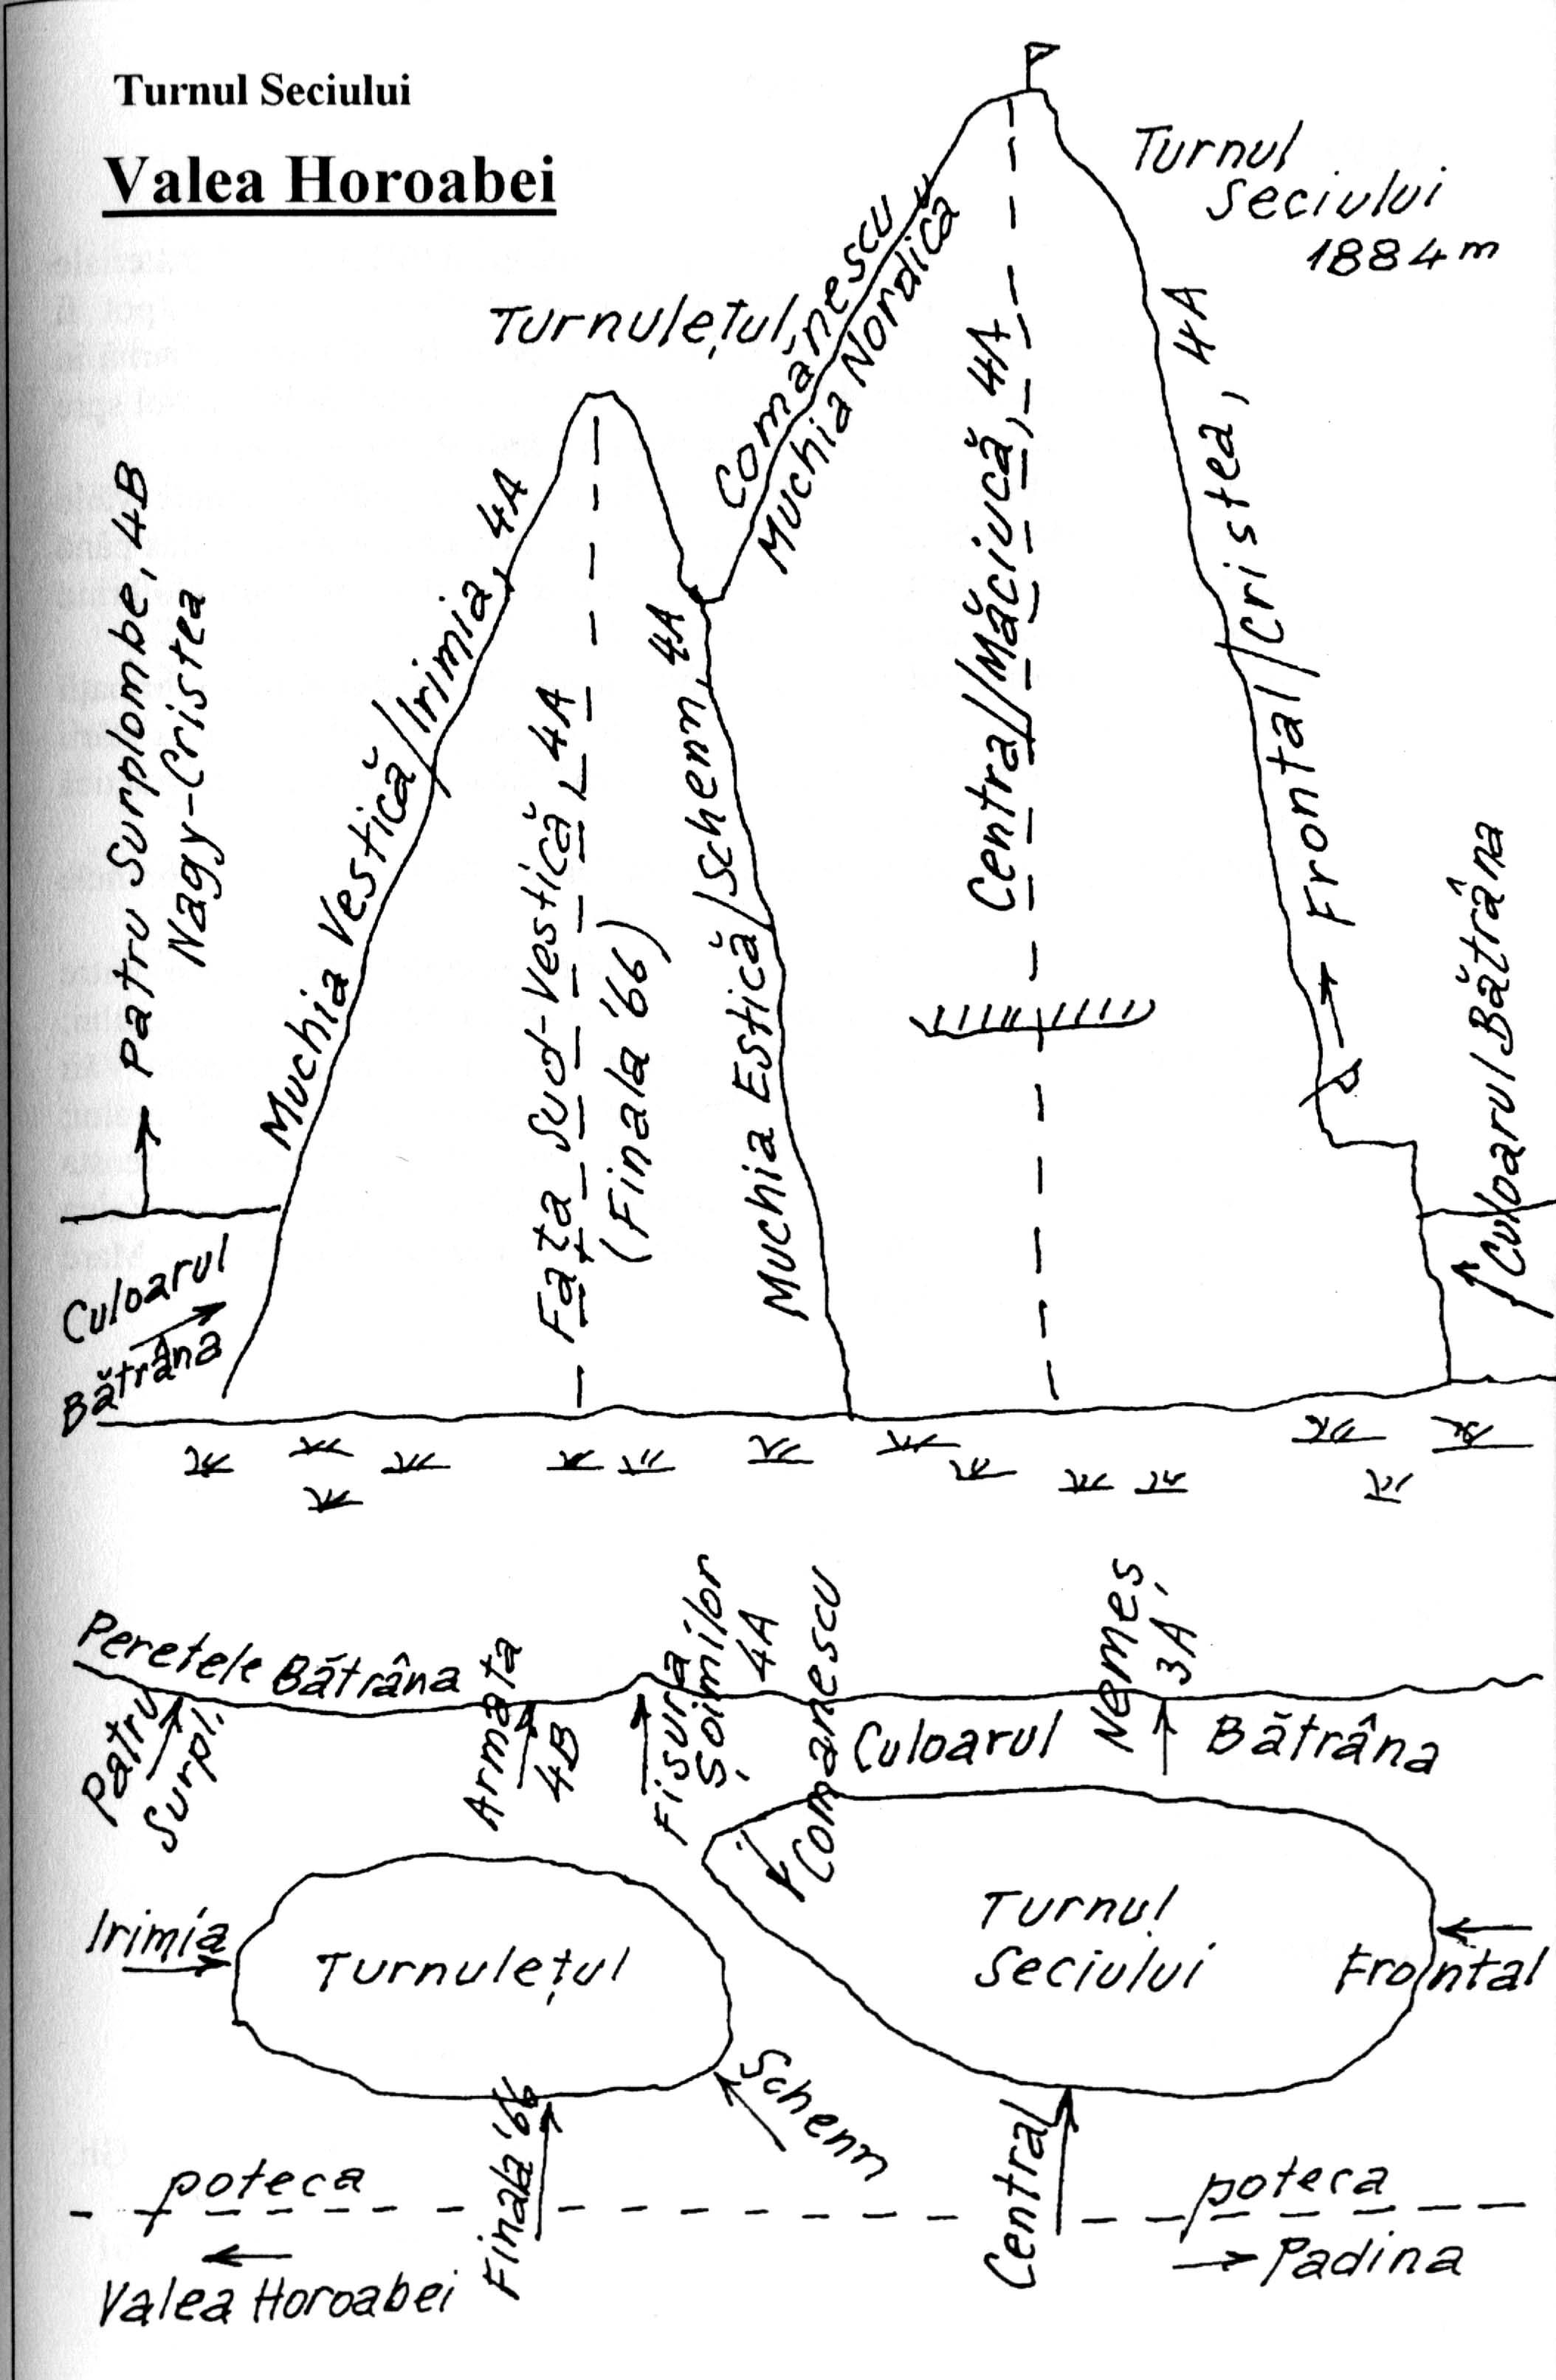 Turnul Seciului
Valea Horoabei
Turnul
Seciului
1884 m
Turnulețul
Comănescu
Muchia Nordică
Patru Surplombe, 4B
Nagy-Cristea
Muchia Vestică/Irimia, 4A
Fața Sud-Vestică, 4A
(Finala '66)
Muchia Estică/Schenn, 4A
Central/Măciucă, 4A
Frontal/Cristea, 4A
Culoarul
Bătrâna
Culoarul Bătrâna
Peretele Bătrâna
Patru
Surpl.
Armata
4B
Fisura
Șoimilor
4A
Comanescu
Nemeș,
3A
Culoarul
Bătrâna
Irimia
Turnulețul
Turnul
Seciului
Frontal
Schenn
Finala '66
Central
poteca
poteca
Valea Horoabei
Padina